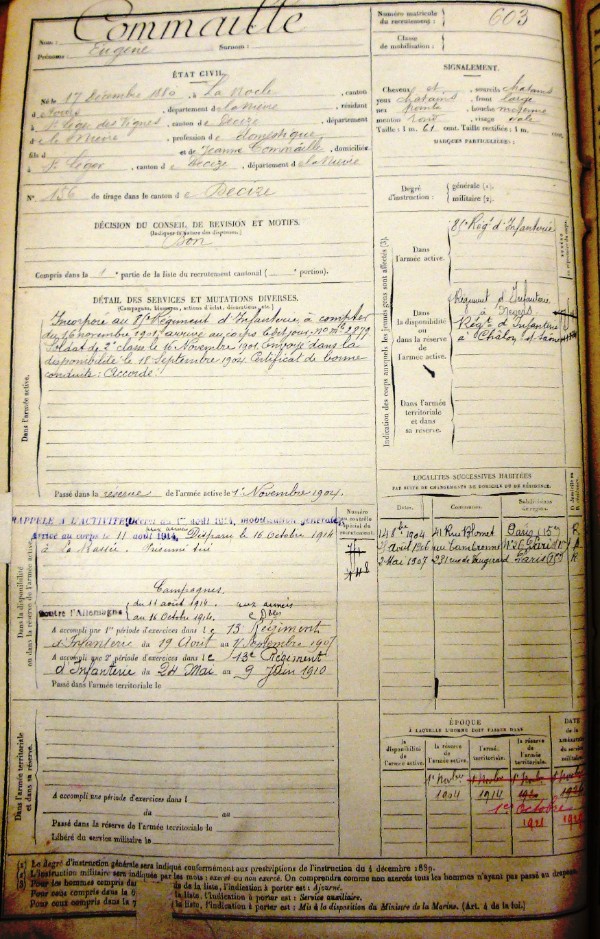 Nom : Commaille
Prénoms : Eugène Surnom :
Numéro matricule du recrutement : 603
Classe de mobilisation :
ÉTAT CIVIL.
Né le 17 Décembre 1880, à La Nocle, canton
d, département d la Nièvre, résidant
à St Léger des Vignes, canton de Decize, département
d la Nièvre, profession de domestique
fils d et de Jeanne Commaille, domiciliée
à St Léger, canton d Decize, département d la Nièvre
N° 156 de tirage dans le canton d Decize
SIGNALEMENT.
Cheveux et sourcils chatains
yeux chatains, front large
nez pointu, bouche moyenne
menton rond, visage ovale
Taille : 1 m. 61 cent. Taille rectifiée : 1 m.
MARQUES PARTICULIÈRES :
Degré d'instruction : générale (1).
militaire (2).
DÉCISION DU CONSEIL DE REVISION ET MOTIFS.
Bon
Compris dans la 1e partie de la liste du recrutement cantonal ( portion).
DÉTAIL DES SERVICES ET MUTATIONS DIVERSES.
(Campagnes, blessures, actions d'éclat, décorations, etc.)
Incorporé au 85e Régiment d'Infanterie à compter
du 16 novembre 1901, arrivé au corps le dit jour, no mle 2879
Soldat de 2e classe le 16 Novembre 1901. Envoyé dans la
disponibilité le 18 Septembre 1904. Certificat de bonne
conduite : Accordé.
Dans l'armée active.
Passé dans la réserve de l'armée active le 1er Novembre 1904.
Indication des corps auxquels les jeunes gens sont affectés (3).
Dans l'armée active.
85e Régt d'Infanterie
Dans la disponibilité ou dans la réserve de l'armée active.
Régiment d'Infanterie
à Nevers
Régt d'Infanterie
à Chalon s/Saone
Dans l'armée territoriale et dans sa réserve.
LOCALITÉS SUCCESSIVES HABITÉES
PAR SUITE DE CHANGEMENTS DE DOMICILE OU DE RÉSIDENCE.
Dates. Communes. Subdivisions de région. D. domicile ou R. résidence.
1904 41 Rue Blomet Paris (15e) R
Avril 1906 rue Cambronne Paris (15e) R
2 Mai 1907 221 rue de Vaugirard Paris (15e) R
Dans la disponibilité ou dans la réserve de l'armée active.
RAPPELÉ A L'ACTIVITÉ (Décret du 1er août 1914, mobilisation générale)
Arrivé au corps le 11 août 1914. aux armées Disparu le 16 octobre 1914
à La Harazée. Présumé tué
Numéro au contrôle spécial du recrutement.
Campagnes
Contre l'Allemagne
du 11 août 1914
au 16 Octobre 1914. aux armées
A accompli une 1re période d'exercices dans le 13e Régiment
d'Infanterie du 19 Aout au 7 Septembre 1907
A accompli une 2e période d'exercices dans le 13e Régiment
d'Infanterie du 24 Mai au 9 Juin 1910
Passé dans l'armée territoriale le
Dans l'armée territoriale et dans sa réserve.
A accompli une période d'exercices dans l
du au
Passé dans la réserve de l'armée territoriale le
Libéré du service militaire le
ÉPOQUE
A LAQUELLE L'HOMME DOIT PASSER DANS
la disponibilité de l'armée active. la réserve de l'armée active. l'armée territoriale. la réserve de l'armée territoriale.
DATE DE LA LIBÉRATION du service militaire.
1er Novbre 1904
1er Novbre 1914
1er Novbre 1920
1er Octobre
1921
(1) Le degré d'instruction générale sera indiqué conformément aux prescriptions de l'instruction du 4 décembre 1889.
(2) L'instruction militaire sera indiquée par les mots : exercé ou non exercé. On comprendra comme non exercés tous les hommes n'ayant pas passé au drapeau.
(3) Pour les hommes compris dans de la liste, l'indication à porter est : Ajourné.
Pour ceux compris dans la 6 la liste, l'indication à porter est : Service auxiliaire.
Pour ceux compris dans la 7 la liste, l'indication à porter est : Mis à la disposition du Ministre de la Marine. (Art. 4 de la loi.)